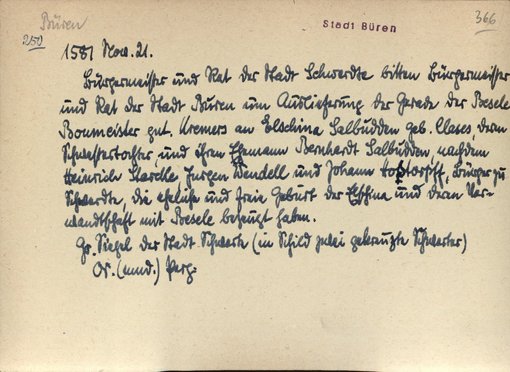 Büren
Stadt Büren
366
250
1581 Nov. 21.
Bürgermeister und Rat der Stadt Schwerdte bitten Bürgermeister
und Rat der Stadt Büren um Auslieferung der Gerade der Besele
Boumeister gnt. Kremers an Elschina Salbudden geb. Claes, deren
Schwestertochter, und ihren Ehemann Bernhardt Salbudden, nachdem
Heinrich Starcke, Jurgen Wendell und Johann Bürger zu
Schwerdte, die eheliche und freie Geburt der Elschina und deren Ver-
wandtschaft mit Besele bezeugt haben.
Gr. Siegel der Stadt Schwerte (in Schild zwei gekreuzte Schwerter)
Or. (mnd.) Perg.